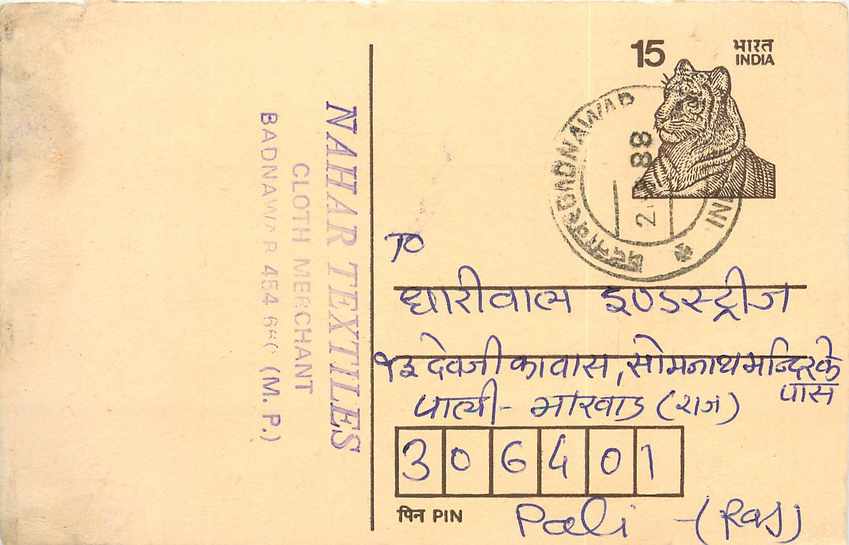 NAHAR TEXTILES
CLOTH MERCHANT
BADNAWAR (M. P.)
15
भारत
INDIA
BADNAWAR
88
TO
धारीवाल इण्डस्ट्रीज
देवजी का वास, सोमनाथ मन्दिर के
पास
पाली - मारवाड (राज)
306401
पिन PIN
Pali - (Raj)